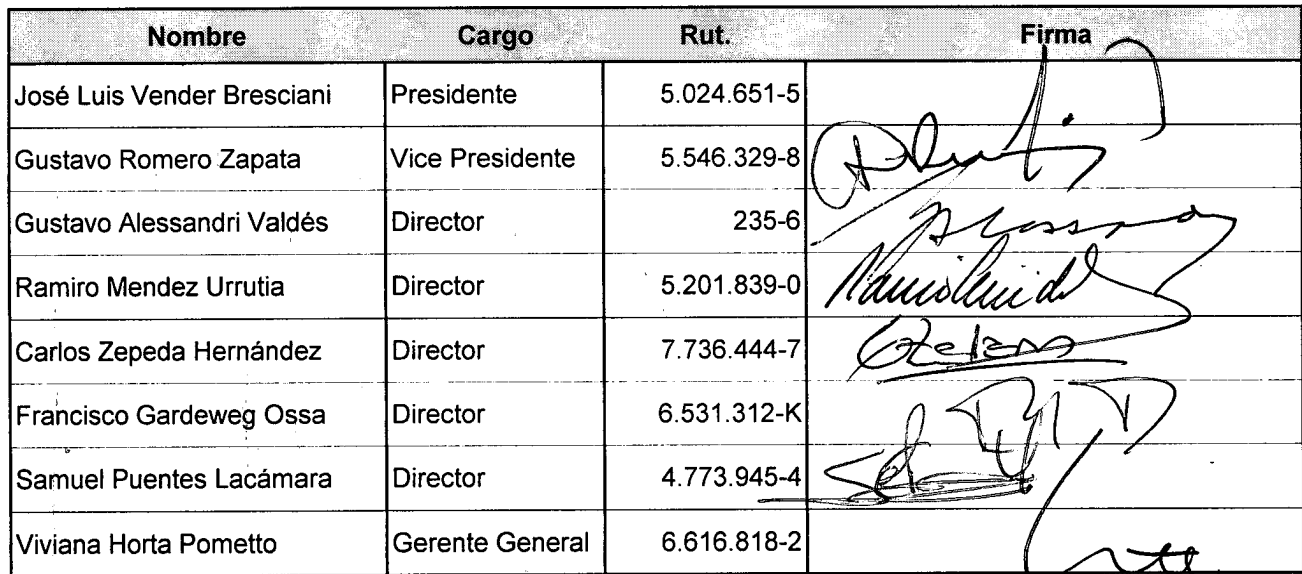 Nombre Cargo Rut. Firma
José Luis Vender Bresciani Presidente 5.024.651-5
Gustavo Romero Zapata Vice Presidente 5.546.329-8
Gustavo Alessandri Valdés Director 235-6
Ramiro Mendez Urrutia Director 5.201.839-0
Carlos Zepeda Hernández Director 7.736.444-7
Francisco Gardeweg Ossa Director 6.531.312-K
Samuel Puentes Lacámara Director 4.773.945-4
Viviana Horta Pometto Gerente General 6.616.818-2